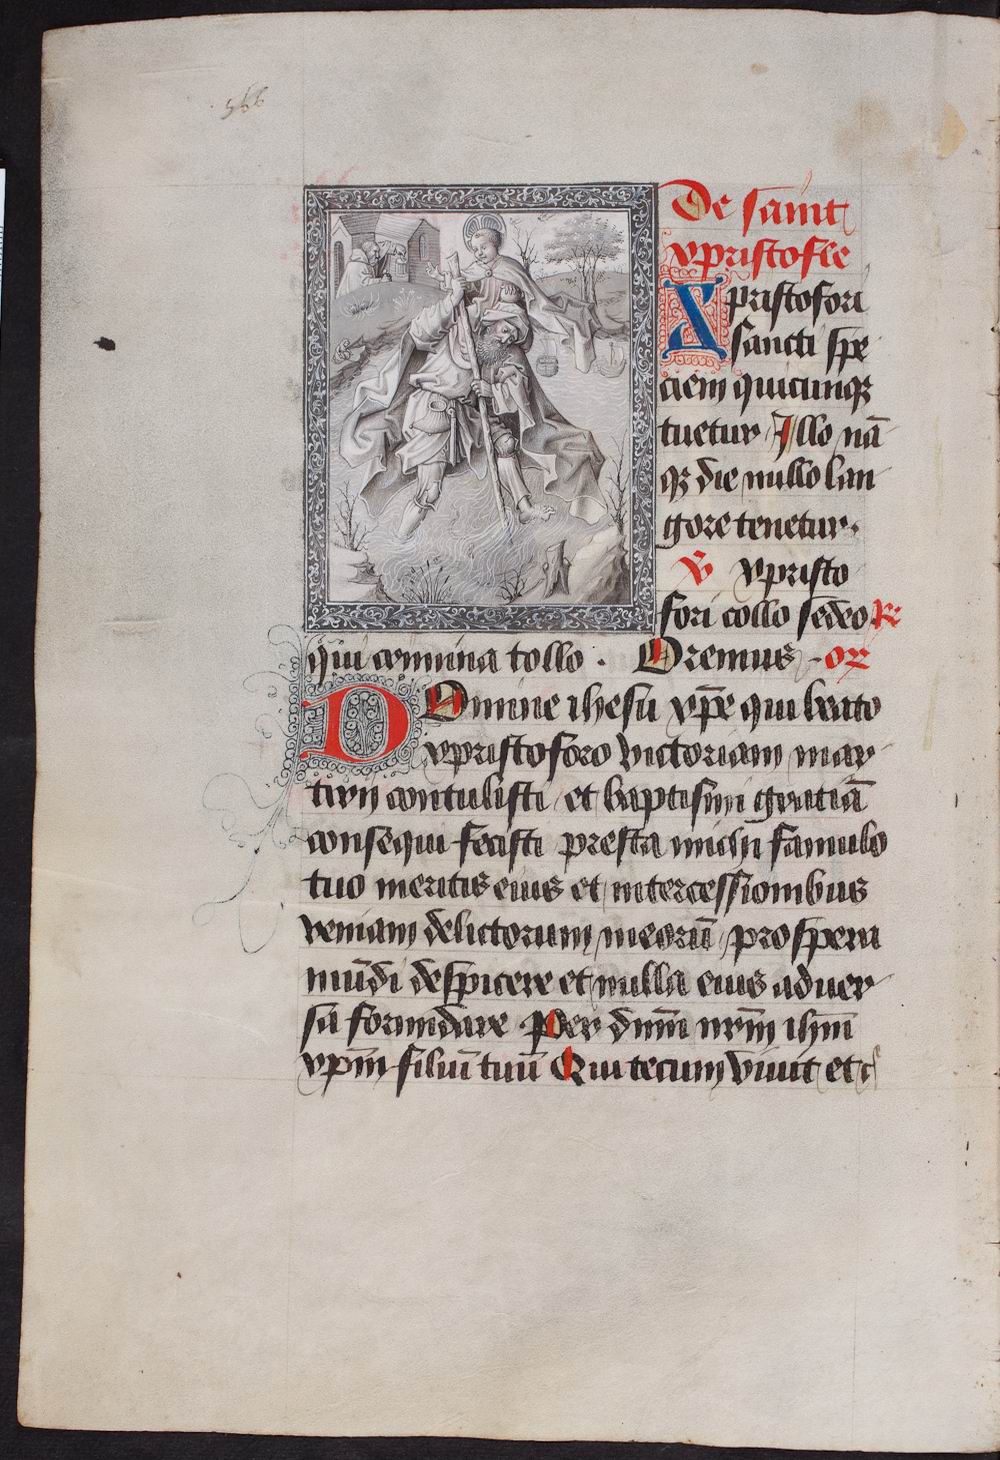 De saint
xpristofle
Xpristofori
sancti spe
ciem quicunqꝫ
tuetur Illo nā
qꝫ die nullo lan
gore tenetur.
℣ xpristo
fori collo sedeo ℟
qui crimina tollo. Oremus or̃
DOmine ihesu xp̄e qui beato
xpristoforo victoriam mar
tirij contulisti et baptismi gratiā
consequi fecisti presta michi famulo
tuo meritis eius et intercessionibus
veniam delictorum meorū prospera
mūdi despicere et nulla eius aduer
sa formidare Per dn̄m nr̄m ihm̄
xp̄m filiū tuū Qui tecum viuit et c̄